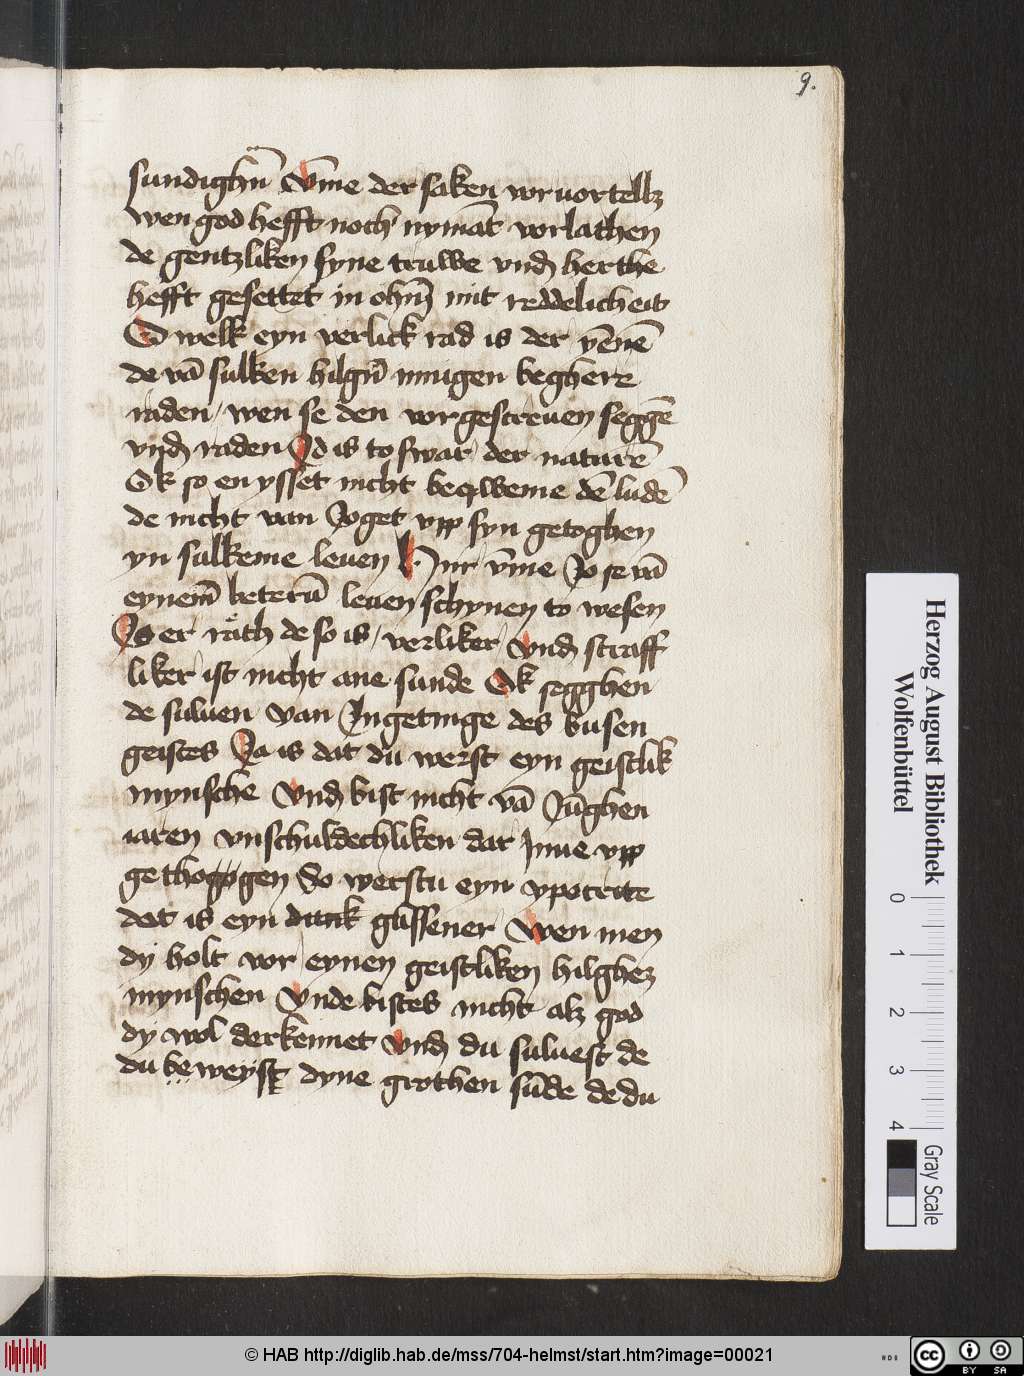 9.
sundighñ Vm̄e der saken voruortellz
wen god hefft noch nymāt vorlathen
de gentzliken syne truwe vnd herthe
hefft gesettet in ohm̄ mit reddelicheit
O welk eyn verlick rad is der yēnē
de vā sulken hilgñ innigen beghere
raden / wen se den vorgescreuen seggē
vnd raden Id is to swar der naturē
Ok so en ysset nicht beqweme dē ludē
de nicht van Joget vpp syn getoghen
yn sulkeme leuen Hir vm̄e Jo se vā
eynem̄ beterū leuen schynen to wesen
Jo er rath de so is / verliker Vnd straff
liker ist nicht ane sunde Ok segghen
de suluen van Ingetinge des busen
geistes Ja is dat du werst eyn geistlik
mynsche Vnd bist nicht vā Jūghen
iaren vnschuldechliken dar Inne vpp
gethogogen So werstu eyn ypocrite
dat is eyn glissener Wen men
dy holt vor eynen geistliken hilghez
mynschen Vnde bistes nicht alz god
dy wol derkennet Vnd du suluest de
du beweyst dyne grothen sūde de du
Herzog August Bibliothek
Wolfenbüttel
0 1 2 3 4
Gray Scale
© HAB http://diglib.hab.de/mss/704-helmst/start.htm?image=00021
cc BY SA